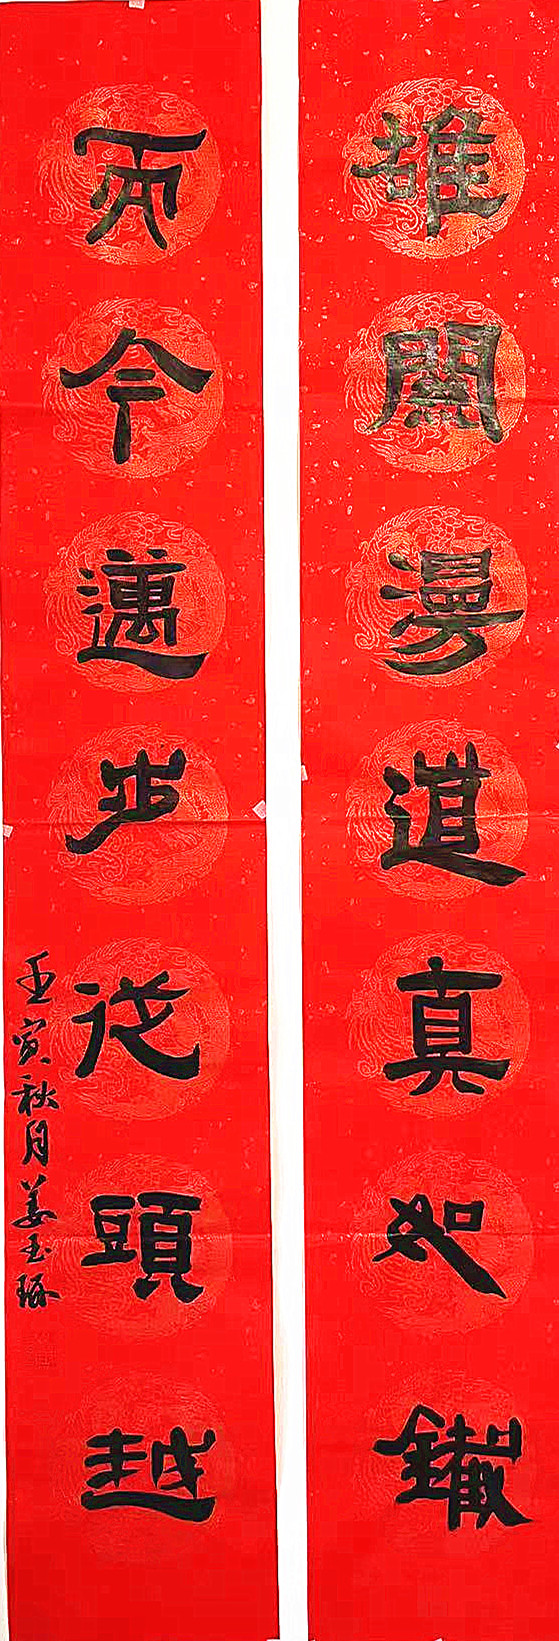 雄關漫道真如鐵
而今邁步從頭越
壬寅秋月姜玉珎